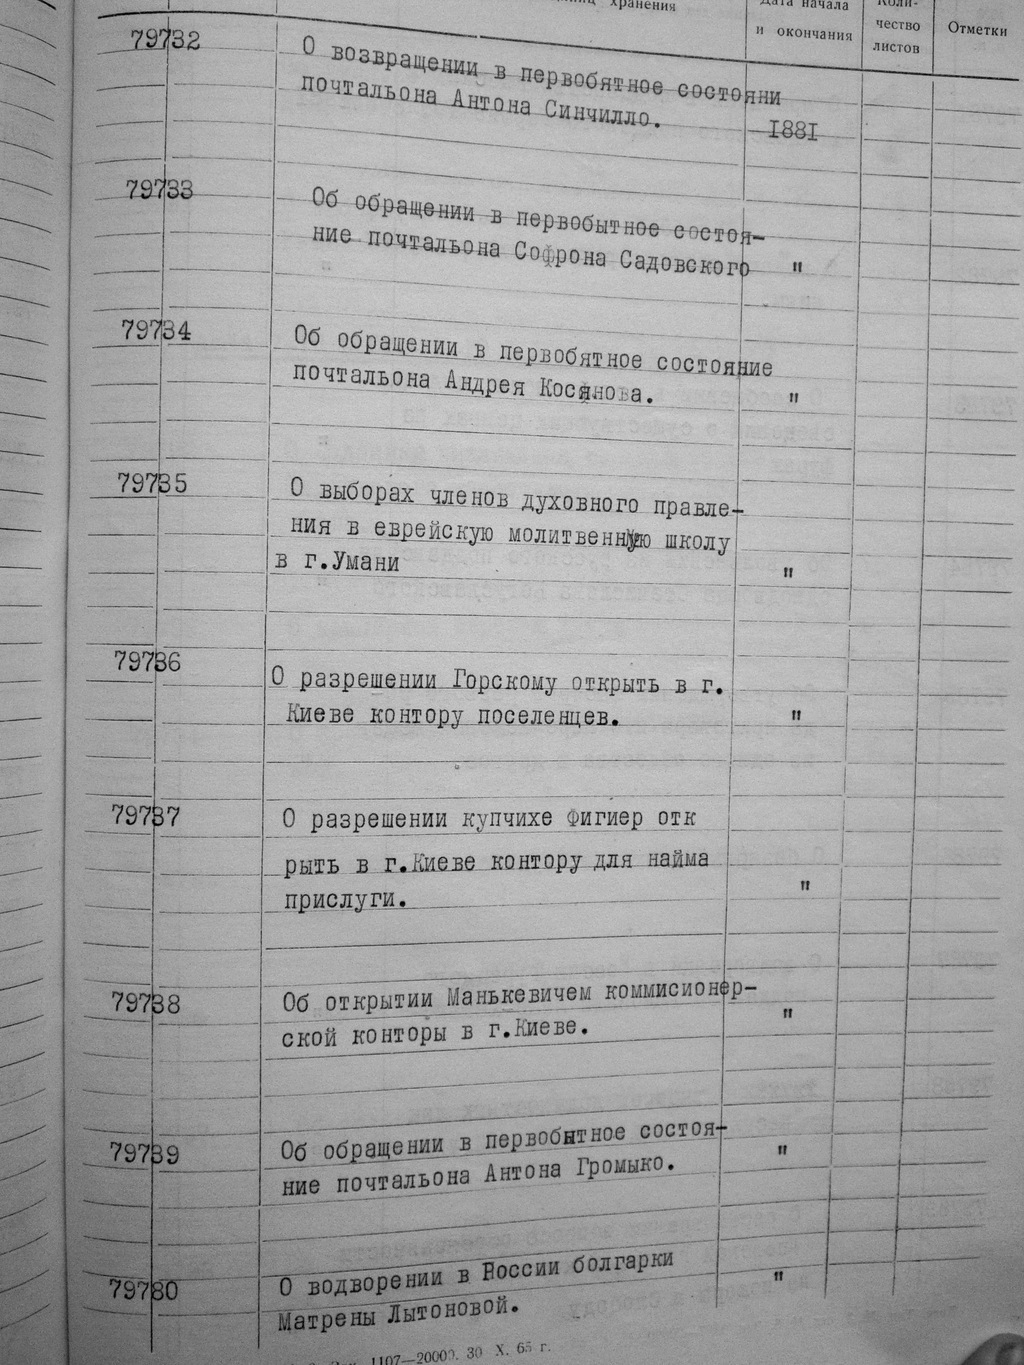 хранения
Дата начала
и окончания
Коли-
чество
листов
Отметки
79732
О возвращении в первобятное состояни
почтальона Антона Синчилло.
1881
79733
Об обращении в первобытное состоя-
ние почтальона Софрона Садовского "
79734
Об обращении в первобятное состояние
почтальона Андрея Косянова. "
79735
О выборах членов духовного правле-
ния в еврейскую молитвенную школу
в г.Умани "
79736
О разрешении Горскому открыть в г.
Киеве контору поселенцев. "
79737
О разрешении купчихе Фигиер отк
рыть в г.Киеве контору для найма
прислуги. "
79738
Об открытии Манькевичем коммисионер-
ской конторы в г.Киеве. "
79739
Об обращении в первобытное состоя-
ние почтальона Антона Громыко. "
79780
О водворении в России болгарки
Матрены Лытоновой. "
1107—20000. 30 X. 65 г.